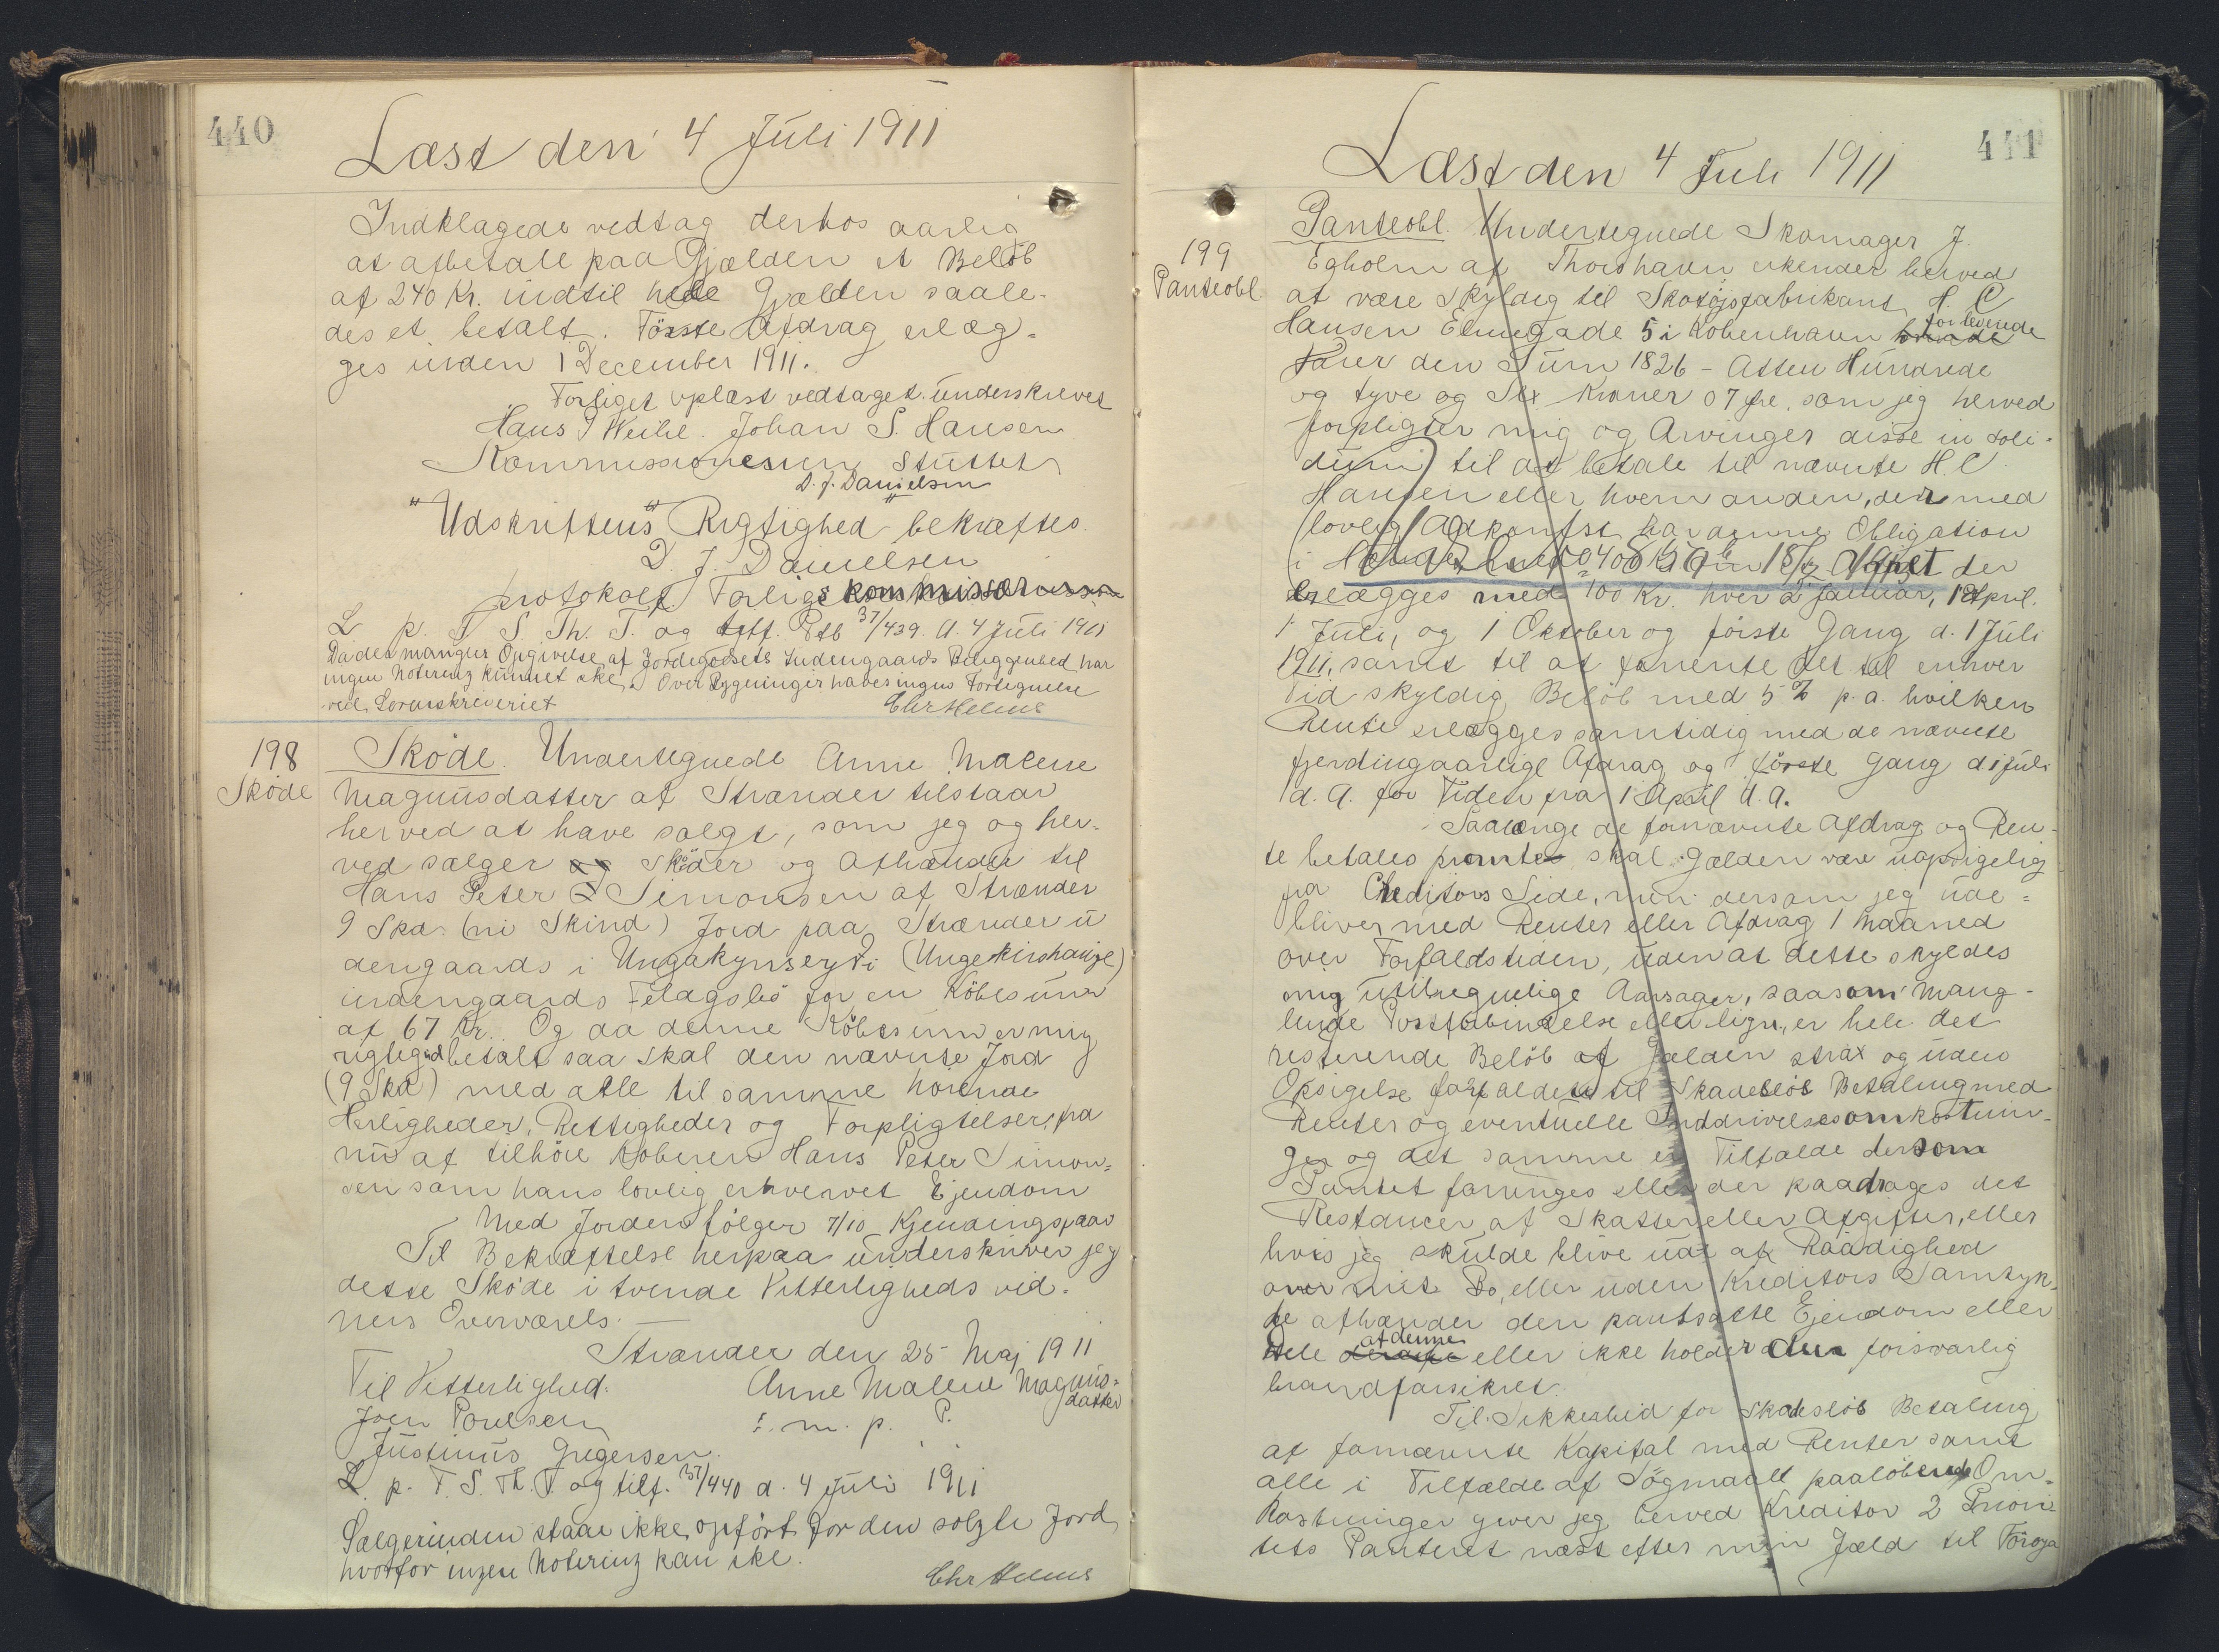 440
Læst den 4 Juli 1911
Indklagede vedtog derhos aarlig
at afbetale paa Gjælden et Beløb
af 240 Kr. indtil hele Gjælden saale-
des er betalt. Første Afdrag erlæg-
ges inden 1 December 1911.
Forliget oplæst vedtaget underskrevet
Hans J Weihe. Johan S. Hansen
Kommissionen sluttet
D. J. Danielsen
"Udskriftens" Rigtighed bekræftes.
D. J. Danielsen
protokolf. Forligskommissær
L. p. T. S. Th. T. og tilf. Ptb 37/439. d. 4 Juli 1911
Da der mangler Opgivelse af Jordegodsets Indengaards Beliggenhed har
ingen Notering kunnet ske. Over Bygninger haves ingen Fortegnelse
ved Sorenskriveriet
Chr Helms
198
Skøde
Skøde. Undertegnede Anne Malene
Magnusdatter af Strænder tilstaar
herved at have solgt, som jeg og her-
ved sælger og skøder og afhænder til
Hans Peter Simonsen af Strænder
9 Skd. (ni Skind) Jord paa Strænder in
dengaards i Ungakynseyti (Ungekinshauge)
indengaards Felagsløs for en Købesum
af 67 Kr. Og da denne Købesum er mig
rigtig betalt saa skal den nævnte Jord
(9 Skd) med alle til samme hørende
Herligheder, Rettigheder og Forpligtelser, fra
nu af tilhøre Køberen Hans Peter Simon=
sen som hans lovlig erhvervet Ejendom
Med Jorden følger 7/10 Kjendingspaas
Til Bekræftelse herpaa underskriver jeg
dette Skøde i tvende Vitterligheds vid-
ners Overværels.
Strænder den 25 Maj 1911
Til Vitterlighed.
Anne Malene Magnus=
datter
Joen Poulsen
m. p. P.
Justinus Gregersen
L. p. T. S. Th. T. og tilf. 37/440 d. 4 Juli 1911
Sælgerinden staar ikke opført for den solgte Jord
hvorfor ingen Notering kan ske.
Chr Helms
441
Læst den 4 Juli 1911
199
Panteobl.
Panteobl. Undertegnede Skomager J.
Egholm af Thorshavn erkender herved
at være skyldig til Skotøjsfabrikant H. C
Hansen Elmegade 5 i København
for leverede
Varer den Sum 1826 - Atten Hundrede
og tyve og Sex Kroner 07 Øre, som jeg herved
forpligter mig og Arvinger disse in soli-
dum til at betale til nævnte H. C.
Hansen eller hvem anden, der med
lovlig Adkomst har denne Obligation
i
der
erlægges med 100 Kr. hver 2 Januar, 1 April.
1 Juli, og 1 Oktober og første Gang d. 1 Juli
1911, samt til at forrente det til enhver
Tid skyldig Beløb med 5 % p. a. hvilken
Rente erlægges samtidig med de nævnte
fjerdingaarlige Afdrag og første Gang d 1 Juli
d. A. for Tiden fra 1 April d. A.
Saalænge de fornævnte Afdrag og Ren-
te betales promte skal Gælden være uopsigelig
fra Creditors Side, men dersom jeg ude=
bliver med Renter eller Afdrag 1 Maaned
over Forfaldstiden, uden at dette skyldes
mig utilregnelige Aarsager, saasom Mang-
lende Postforbindelse eller lign., er hele det
resterende Beløb af Gælden strax og uden
Opsigelse forfalden til Skadesløs Betaling med
Renter og eventuelle Inddrivelsesomkostnin-
ger og det samme er Tilfælde dersom
Pantet forringes eller der paadrages det
Restancer af Skatter eller Afgifter, eller
hvis jeg skulde blive ude af Raadighed
over mit Bo, eller uden Kreditors Samtyk-
ke afhænder den pantsatte Ejendom eller
Dele
af denne
eller ikke holder den forsvarlig
brandforsikret.
Til Sikkerhed for skadesløs Betaling
af fornævnte Kapital med Renter samt
alle i Tilfælde af Søgmaall paaløbende Om-
kostninger giver jeg herved Kreditor 2 Priori
tets Panteret næst efter min Gæld til Föroya